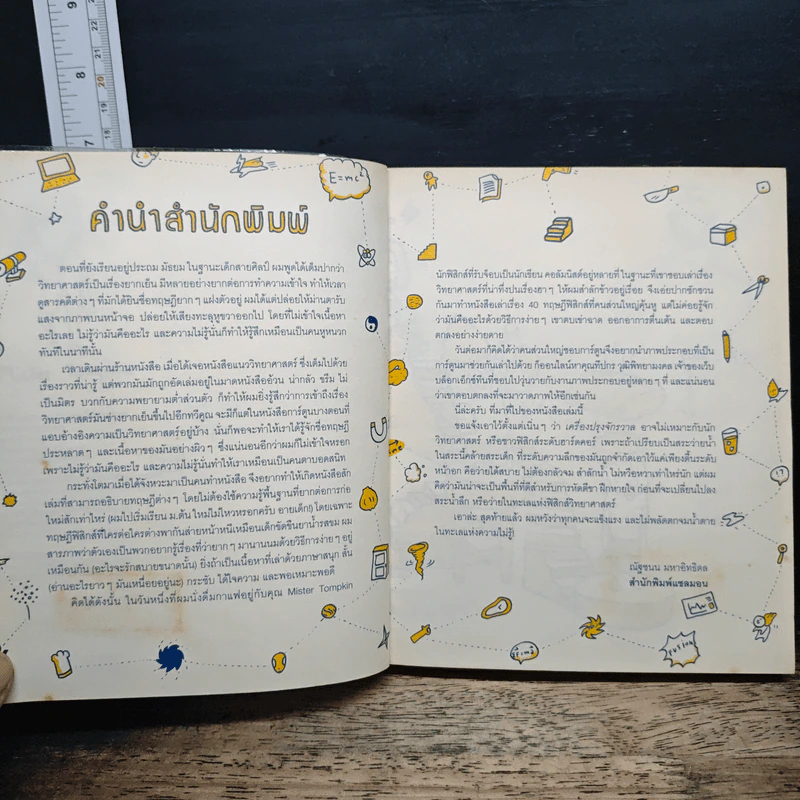 9
8
7
22
21
20
19
18
E=mc²
คำนำสำนักพิมพ์
ตอนที่ยังเรียนอยู่ประถม มัธยม ในฐานะเด็กสายศิลป์ ผมพูดได้เต็มปากว่า
วิทยาศาสตร์เป็นเรื่องยากเย็น มีหลายอย่างยากต่อการทำความเข้าใจ ทำให้เวลา
ดูสารคดีต่าง ๆ ที่มักได้ยินชื่อทฤษฎียาก ๆ แฝงตัวอยู่ ผมได้แต่ปล่อยให้ผ่านตารับ
แสงจากภาพบนหน้าจอ ปล่อยให้เสียงทะลุหูขวาออกไป โดยที่ไม่เข้าใจเนื้อหา
อะไรเลย ไม่รู้ว่ามันคืออะไร และความไม่รู้นั่นก็ทำให้รู้สึกเหมือนเป็นคนหูหนวก
ทันทีในนาทีนั้น
เวลาเดินผ่านร้านหนังสือ เมื่อได้เจอหนังสือแนววิทยาศาสตร์ ซึ่งเต็มไปด้วย
เรื่องราวที่น่ารู้ แต่พวกมันมักถูกอัดเล่มอยู่ในมาดหนังสืออ้วน น่ากลัว ขรึม ไม่
เป็นมิตร บวกกับความพยายามต่ำส่วนตัว ก็ทำให้ผมยิ่งรู้สึกว่าการเข้าถึงเรื่อง
วิทยาศาสตร์มันช่างยากเย็นขึ้นไปอีกทวีคูณ จะมีก็แต่ในหนังสือการ์ตูนบางตอนที่
แอบอ้างอิงความเป็นวิทยาศาสตร์อยู่บ้าง นั่นพอจะทำให้เราได้รู้จักชื่อทฤษฎี
ประหลาด ๆ และเนื้อหาของมันอย่างผิว ๆ ซึ่งแน่นอนอีกว่าผมก็ไม่เข้าใจหรอก
เพราะไม่รู้ว่ามันคืออะไร และความไม่รู้นั่นก็ทำให้เราเหมือนเป็นคนตาบอดสนิท
กระทั่งไดมาเมื่อได้จังหวะมาเป็นคนทำหนังสือ จึงอยากทำให้เกิดหนังสือสัก
เล่มที่สามารถอธิบายทฤษฎีต่าง ๆ โดยไม่ต้องใช้ความรู้พื้นฐานที่ยากต่อการก่อ
ใหม่สักเท่าไหร่ (ผมไปเริ่มเรียน ม.ต้น ใหม่ไม่ไหวหรอกครับ อายเด็ก!) โดยเฉพาะ
ทฤษฎีฟิสิกส์ที่ใครต่อใครต่างพากันส่ายหน้าหนีเหมือนเด็กขัดขืนยาน้ำรสขม ผม
สารภาพว่าตัวเองเป็นพวกอยากรู้เรื่องที่ว่ายาก ๆ มานานนมด้วยวิธีการง่าย ๆ อยู่
เหมือนกัน (อะไรจะรักสบายขนาดนั้น) ยิ่งถ้าเป็นเนื้อหาที่เล่าด้วยภาษาสนุก สั้น
(อ่านอะไรยาว ๆ มันเหนื่อยอยู่นะ) กระชับ ได้ใจความ และพอเหมาะพอดี
คิดได้ดังนั้น ในวันหนึ่งที่ผมนั่งดื่มกาแฟอยู่กับคุณ Mister Tompkin
นักฟิสิกส์ที่รับจ็อบเป็นนักเขียน คอลัมนิสต์อยู่หลายที่ ในฐานะที่เขาชอบเล่าเรื่อง
วิทยาศาสตร์ที่น่าทึ่งปนเรื่องฮา ๆ ให้ผมสำลักข้าวอยู่เรื่อย จึงเอ่ยปากชักชวน
กันมาทำหนังสือเล่าเรื่อง 40 ทฤษฎีฟิสิกส์ที่คนส่วนใหญ่คุ้นหู แต่ไม่ค่อยรู้จัก
ว่ามันคืออะไรด้วยวิธีการง่าย ๆ เขาตบเข่าฉาด ออกอาการตื่นเต้น และตอบ
ตกลงอย่างง่ายดาย
วันต่อมาก็คิดได้ว่าคนส่วนใหญ่ชอบการ์ตูนจึงอยากนำภาพประกอบที่เป็น
การ์ตูนมาช่วยเล่าไปด้วย ก็ออนไลน์หาคุณทีปกร วุฒิพิทยามงคล เจ้าของเว็บ
บล็อกเอ็กซ์ทีนที่ชอบไปวุ่นวายกับงานภาพประกอบอยู่หลายๆ ที่ และแน่นอน
ว่าเขาตอบตกลงที่จะมาวาดภาพให้อีกเช่นกัน
นี่ล่ะครับ ที่มาที่ไปของหนังสือเล่มนี้
ขอแจ้งเอาไว้ตั้งแต่เนิ่น ๆ ว่า เครื่องปรุงจักรวาล อาจไม่เหมาะกับนัก
วิทยาศาสตร์ หรือชาวฟิสิกส์ระดับฮาร์ดคอร์ เพราะถ้าเปรียบเป็นสระว่ายน้ำ
ในสระนี้คล้ายสระเด็ก ที่ระดับความลึกของมันถูกจำกัดเอาไว้แค่เพียงตื้นระดับ
หน้าอก คือว่ายได้สบาย ไม่ต้องกลัวจม สำลักน้ำ ไม่หวือหวาเท่าไหร่นัก แต่ผม
คิดว่ามันน่าจะเป็นพื้นที่ที่ดีสำหรับการหัดตีขา ฝึกหายใจ ก่อนที่จะเปลี่ยนไปลง
สระน้ำลึก หรือว่ายในทะเลแห่งฟิสิกส์วิทยาศาสตร์
เอาล่ะ สุดท้ายแล้ว ผมหวังว่าทุกคนจะแข็งแรง และไม่พลัดตกจมน้ำตาย
ในทะเลแห่งความไม่รู้!
ณัฐชนน มหาอิทธิดล
สำนักพิมพ์แซลมอน